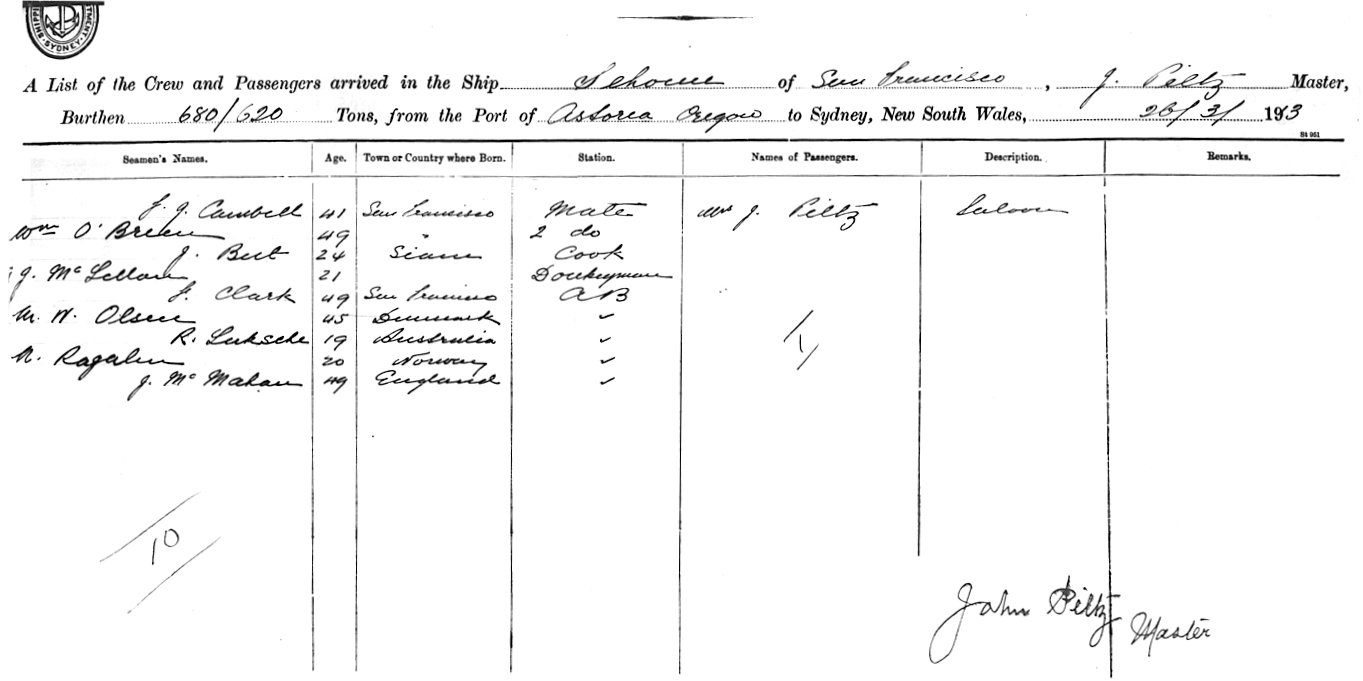 SHIPPI TMENT. SYDNEY
A List of the Crew and Passengers arrived in the Ship Sehome of San Francisco , J. Piltz Master,
Burthen 680/620 Tons, from the Port of Astoria Oregon to Sydney, New South Wales, 26/3/ 1913
St 961
Seamen's Names. Age. Town or Country where Born. Station. Names of Passengers. Description. Remarks.
J. J. Cambell 41 San Francisco Mate Mrs J. Piltz Saloon
Wm O'Brien 49 " 2 do
J. But 24 Siam Cook
J. McLellan 21 Donkeyman
J. Clark 49 San Francisco AB
M. W. Olsen 45 Denmark ✓
R. Luksche 19 Australia ✓
N. 20 Norway ✓
J. McMahan 49 England ✓
1
10
John Piltz Master